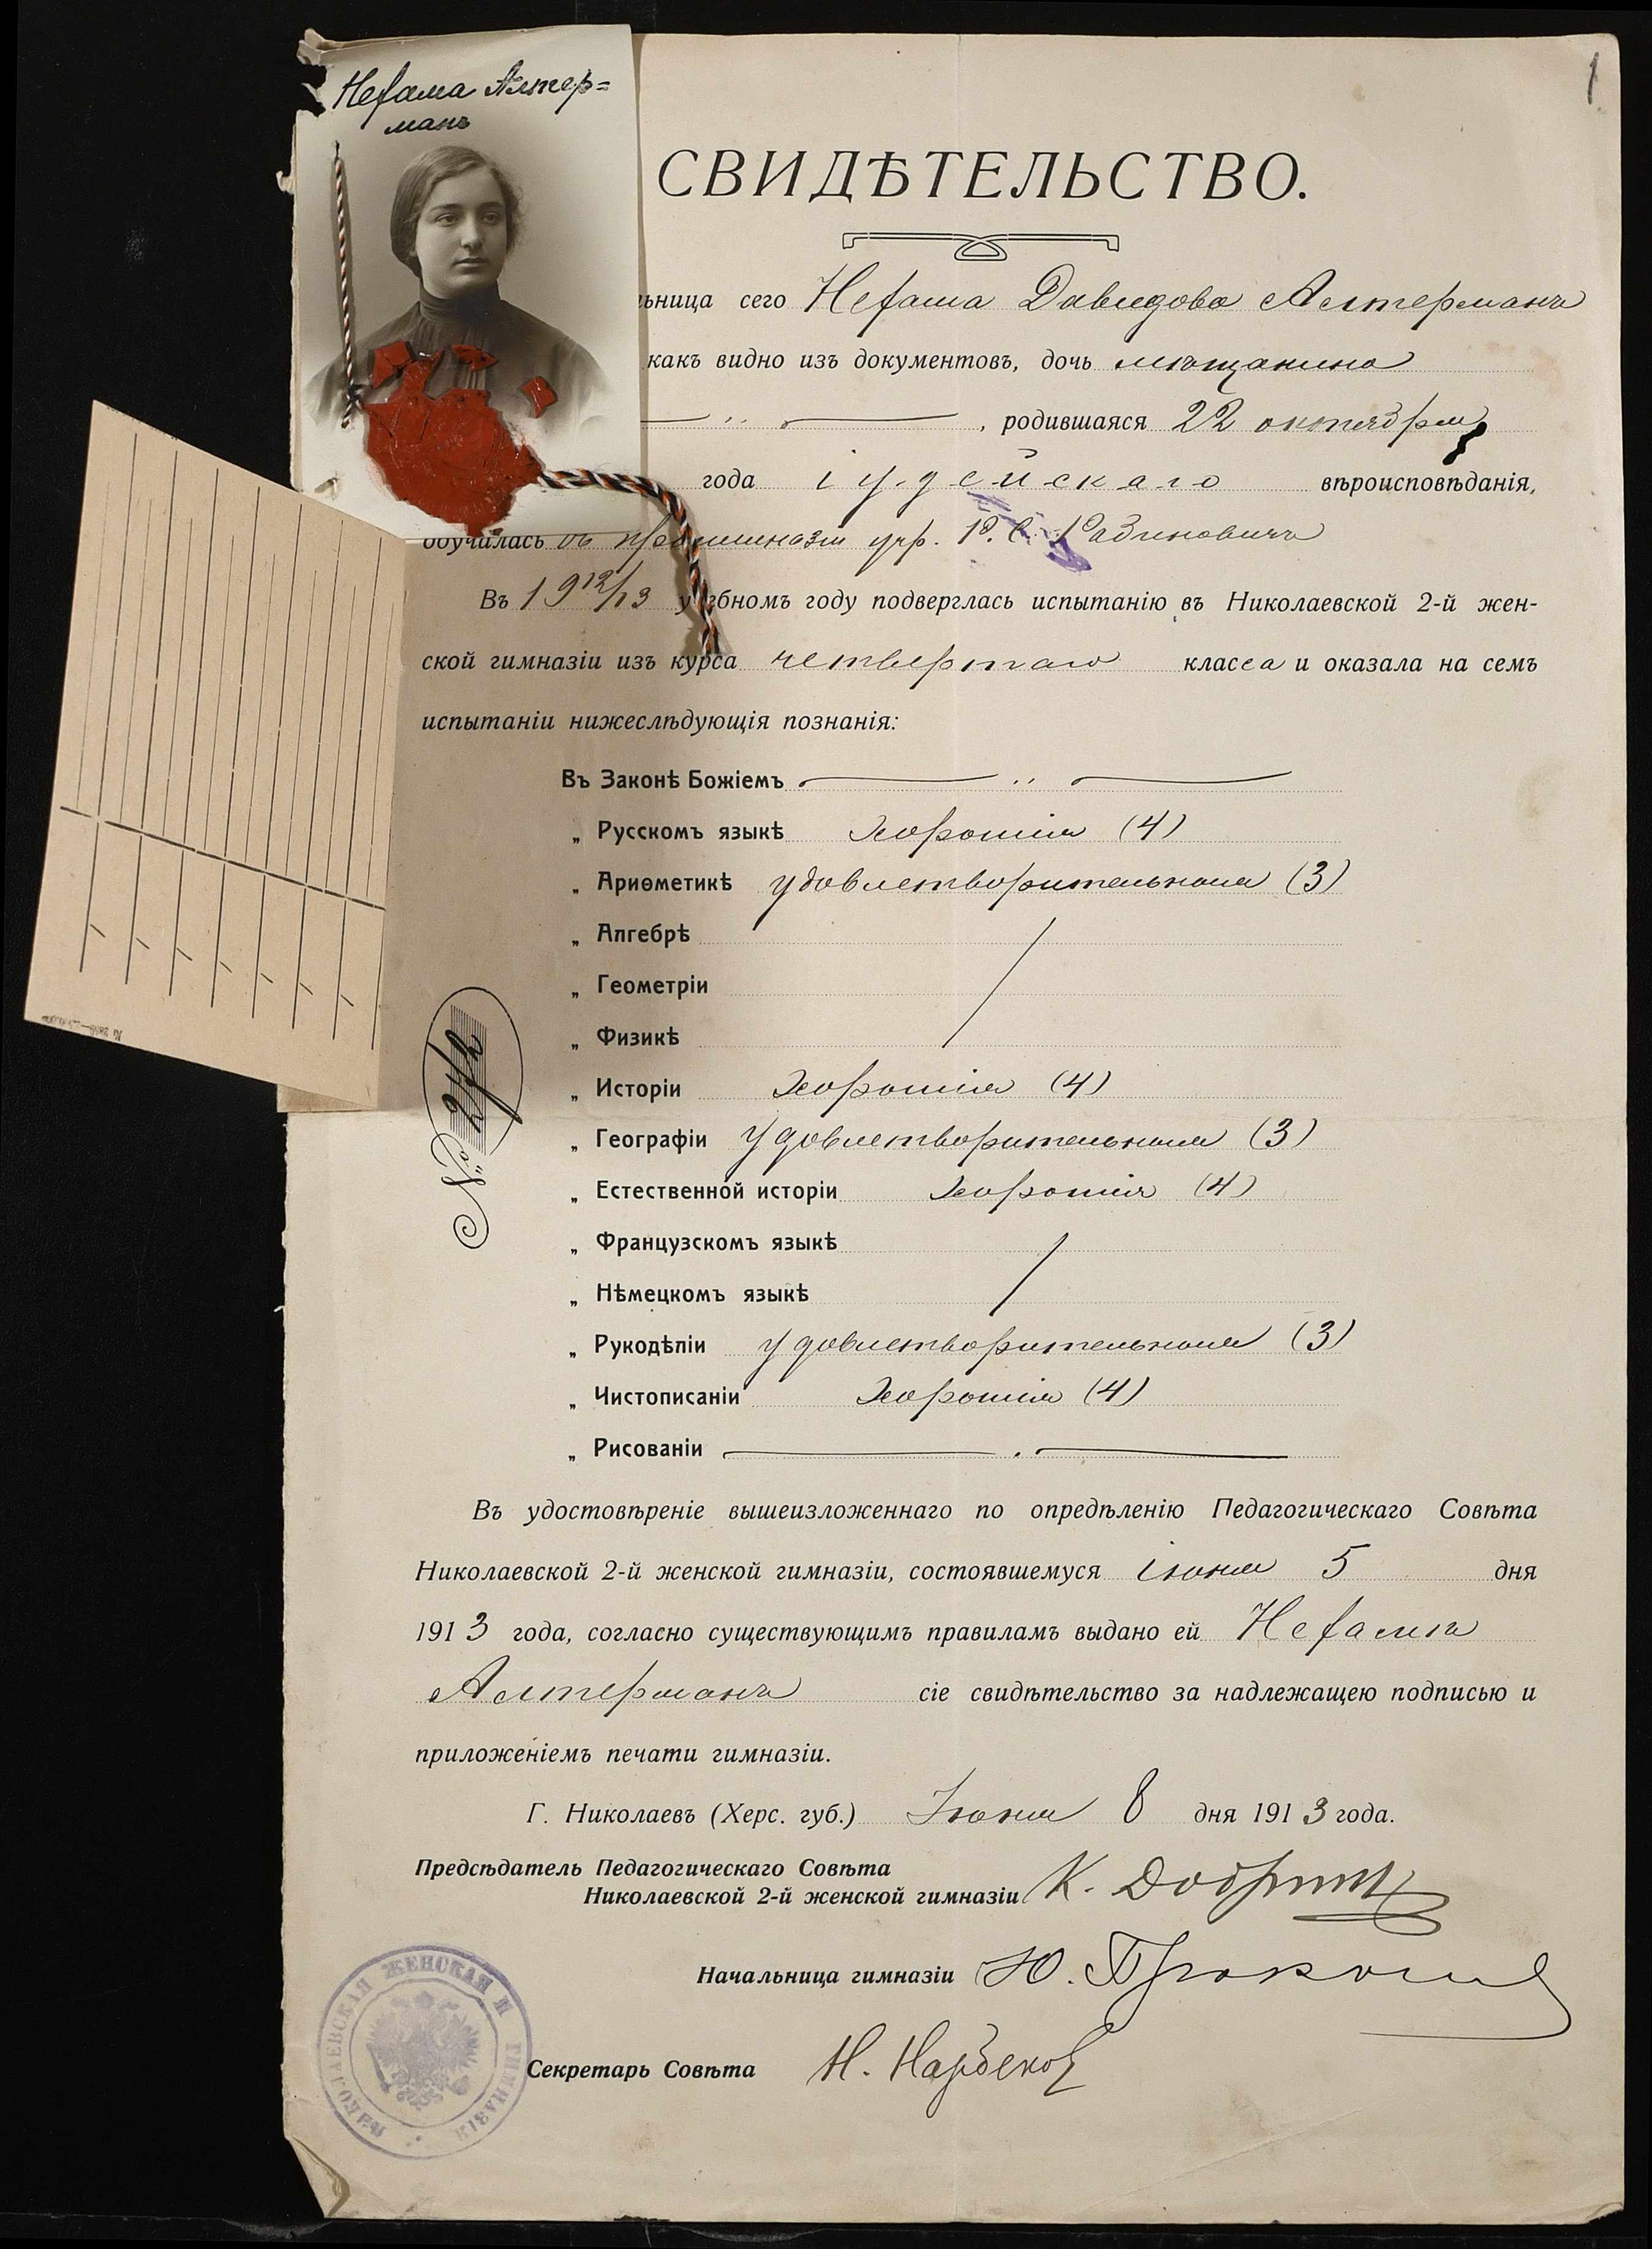 1
Нехама Алтер=
манъ
СВИДѢТЕЛЬСТВО.
ьница сего Нехама Давидова Алтерманъ
какъ видно изъ документовъ, дочь мѣщанина
, родившаяся 22 октября
года іудейскаго вѣроисповѣданія,
обучалась въ прогимназіи учр. Р. С. Рабиновичъ
Въ 1912/13 учебномъ году подверглась испытанію въ Николаевской 2-й жен-
ской гимназіи изъ курса четвертаго класса и оказала на семъ
испытаніи нижеслѣдующія познанія:
Въ Законѣ Божіемъ
„ Русскомъ языкѣ хорошія (4)
„ Ариѳметикѣ удовлетворительныя (3)
„ Алгебрѣ
„ Геометріи
„ Физикѣ
„ Исторіи хорошія (4)
„ Географіи удовлетворительныя (3)
„ Естественной исторіи хорошія (4)
„ Французскомъ языкѣ
„ Нѣмецкомъ языкѣ
„ Рукодѣліи удовлетворительныя (3)
„ Чистописаніи хорошія (4)
„ Рисованіи
№
Въ удостовѣреніе вышеизложеннаго по опредѣленію Педагогическаго Совѣта
Николаевской 2-й женской гимназіи, состоявшемуся іюня 5 дня
1913 года, согласно существующимъ правиламъ выдано ей Нехамѣ
Алтерманъ сіе свидѣтельство за надлежащею подписью и
приложеніемъ печати гимназіи.
Г. Николаевъ (Херс. губ.) Іюня 8 дня 1913 года.
Предсѣдатель Педагогическаго Совѣта
Николаевской 2-й женской гимназіи К.
Начальница гимназіи Ю.
Секретарь Совѣта Н. Нарбеков
НИКОЛАЕВСКАЯ ЖЕНСКАЯ II ГИМНАЗІЯ